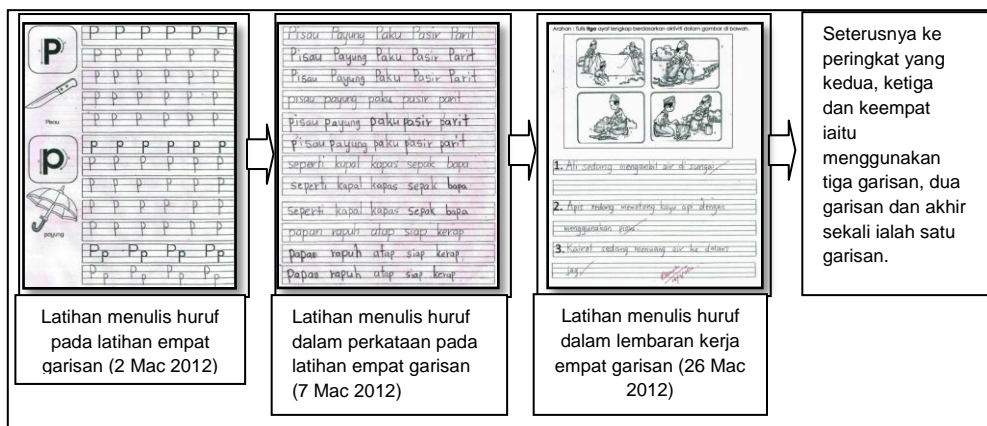 P
P P P P P P
P P P P P P
P P P P P P
P P P P P P
P P P P P P
Pisau
p
P P P P P P
P P P P P P
P P P P P
P P P P P
payung
Pp Pp Pp Pp
Pp Pp Pp Pp
Latihan menulis huruf
pada latihan empat
garisan (2 Mac 2012)
Pisau Payung Paku Pasir Parit
Pisau Payung Paku Pasir Parit
Pisau Payung Paku Pasir Parit
pisau payung paku pasir parit
pisau payung paku pasir parit
pisau payung paku pasir parit
seperti kapal kapas sepak bapa
seperti kapal kapas sepak bapa
seperti kapal kapas sepak bapa
papan rapuh atap siap kerap
papan rapuh atap siap kerap
papan rapuh atap siap kerap
Latihan menulis huruf
dalam perkataan pada
latihan empat garisan
(7 Mac 2012)
Arahan : Tulis tiga ayat lengkap berdasarkan aktiviti dalam gambar di bawah.
1. Ali sedang mengambil air di sungai
2. Apis sedang memotong kayu api dengan
menggunakan pisau.
3. Kairol sedang menuang air ke dalam
jag.
Latihan menulis huruf
dalam lembaran kerja
empat garisan (26 Mac
2012)
Seterusnya ke
peringkat yang
kedua, ketiga
dan keempat
iaitu
menggunakan
tiga garisan, dua
garisan dan akhir
sekali ialah satu
garisan.